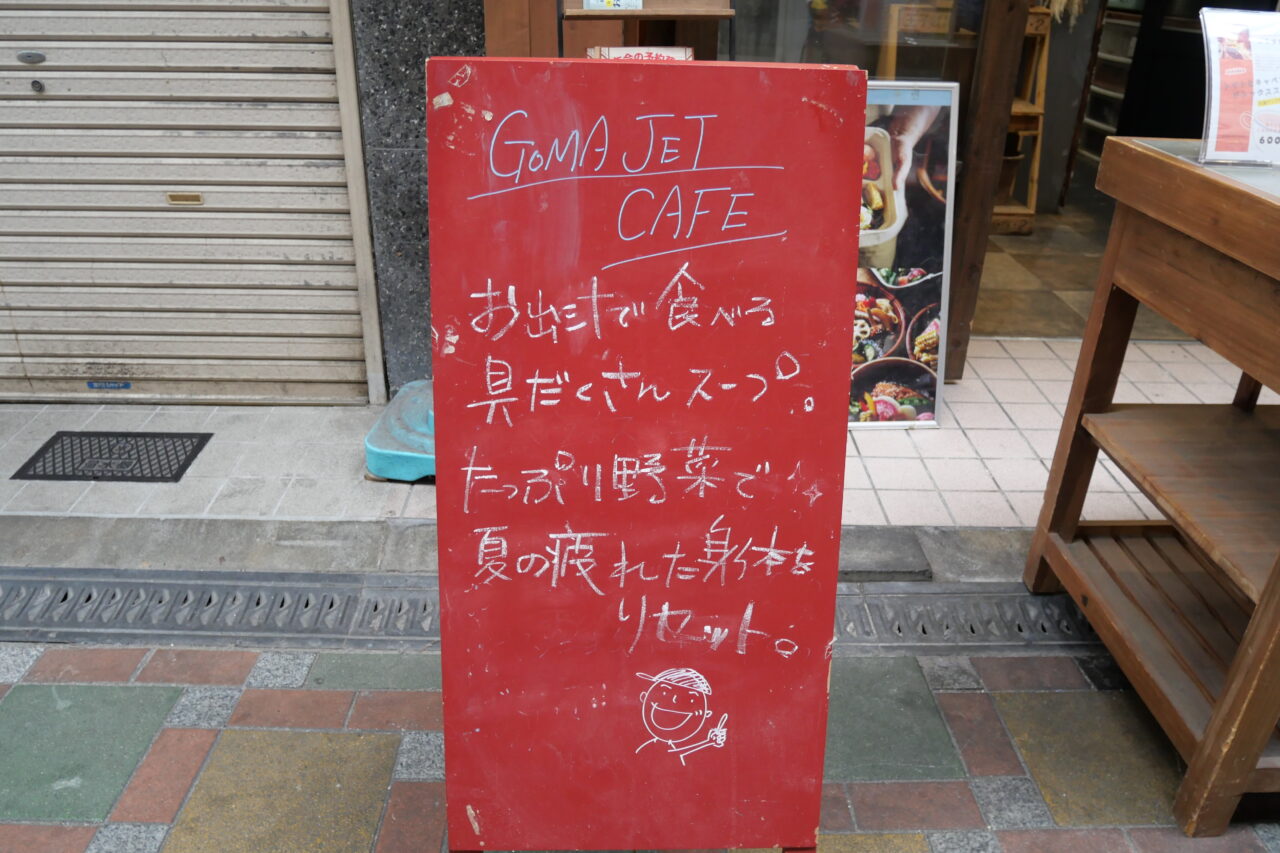 GOMA JET
CAFE
お出汁で食べる
具だくさんスープ。
たっぷり野菜で
夏の疲れた身体を
リセット。
600